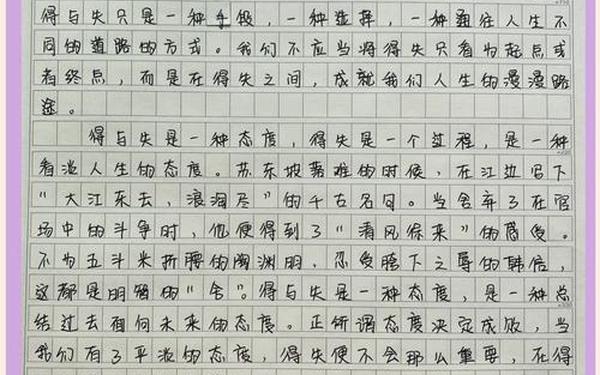 得与失只是一种手段，一种选择，一种通往人生不
同的道路的方式。我们不应当将得失只看为起点或
者终点，而是在得失之间，成就我们人生的漫漫路
途。
得与失是一种态度，得失是一个过程，是一种
看淡人生的态度。苏东坡落难的时候，在江边写下
“大江东去，浪淘尽”的千古名句。当舍弃了在官
场中的斗争时，他便得到了“清风徐来”的感受。
不为五斗米折腰的陶渊明，忍受胯下之辱的韩信，
这都是明智的“舍”。得与失是一种态度，是一种总
结过去面向未来的态度。正所谓态度决定成败，当
我们有了平淡的态度，得失便不会那么重要，在得